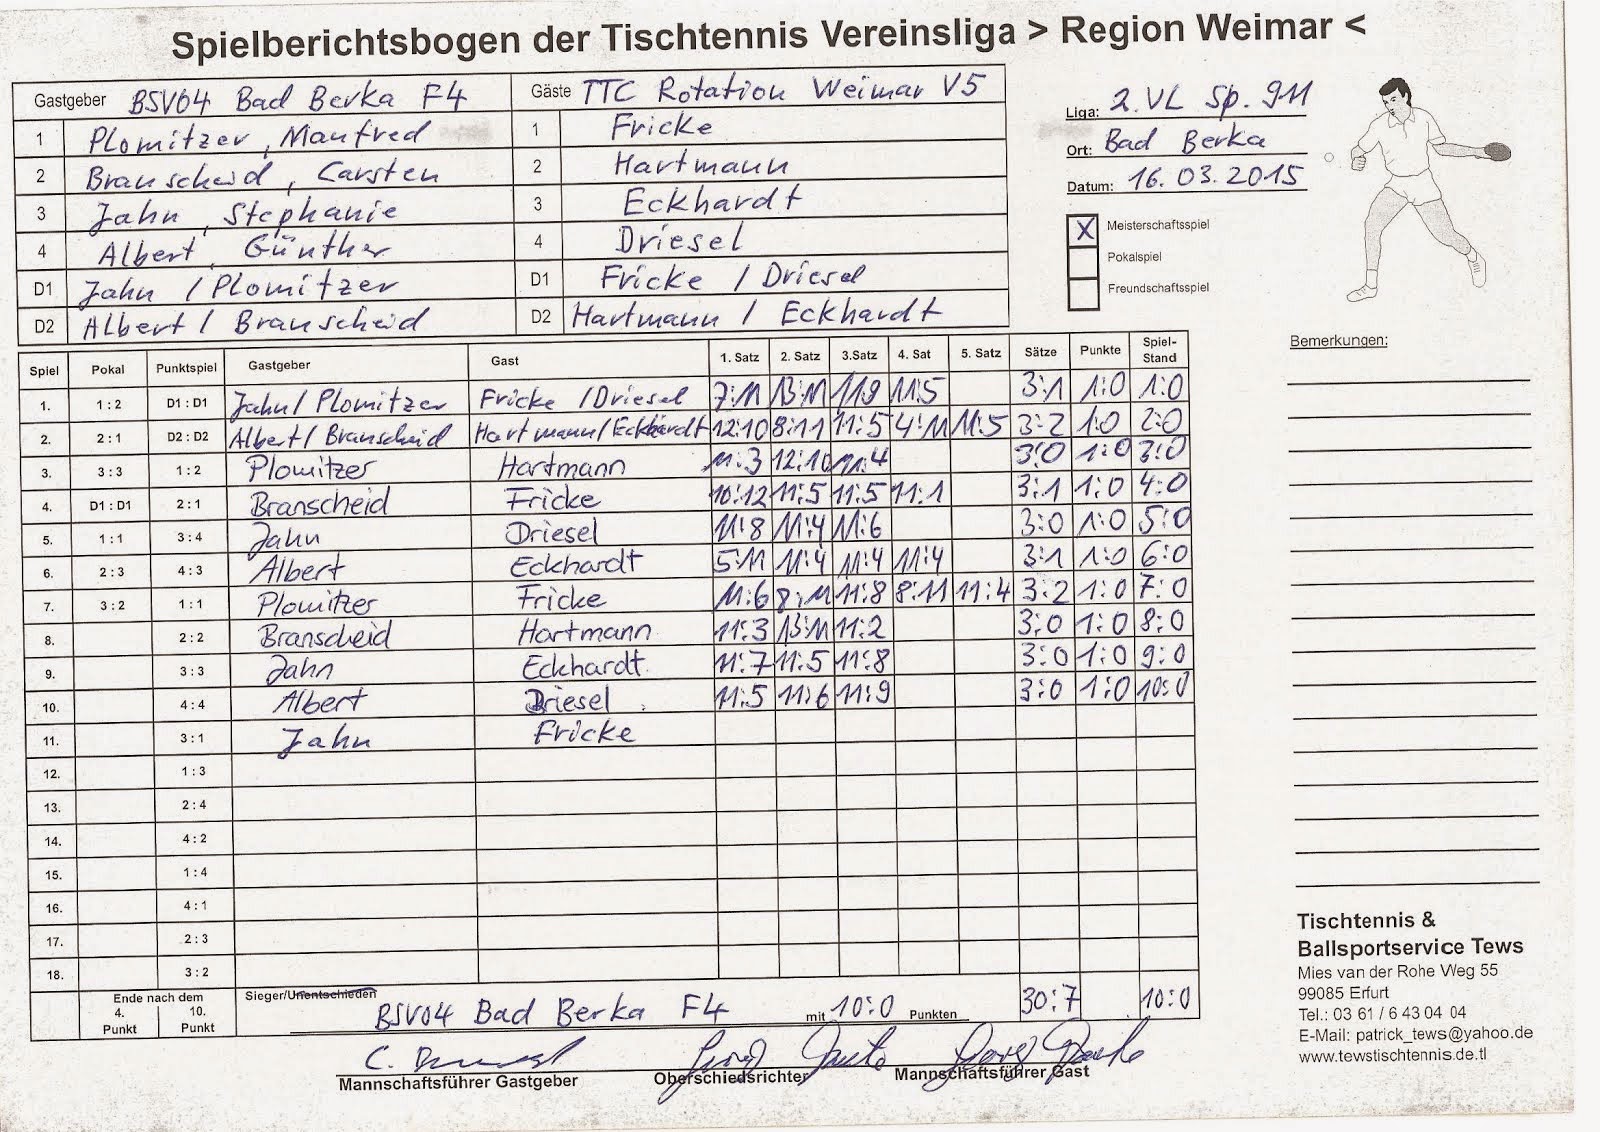 Spielberichtsbogen der Tischtennis Vereinsliga > Region Weimar <
Gastgeber BSV04 Bad Berka F4 Gäste TTC Rotation Weimar V5
1 Plomitzer, Manfred 1 Fricke
2 Branscheid, Carsten 2 Hartmann
3 Jahn, Stephanie 3 Eckhardt
4 Albert, Günther 4 Driesel
D1 Jahn / Plomitzer D1 Fricke / Driesel
D2 Albert / Branscheid D2 Hartmann / Eckhardt
Liga: 2. VL Sp. 911
Ort: Bad Berka
Datum: 16.03.2015
X Meisterschaftsspiel
Pokalspiel
Freundschaftsspiel
Spiel Pokal Punktspiel Gastgeber Gast 1. Satz 2. Satz 3.Satz 4. Sat 5. Satz Sätze Punkte Spiel-Stand
1. 1 : 2 D1 : D1 Jahn / Plomitzer Fricke / Driesel 7:11 13:11 11:9 11:5 3:1 1:0 1:0
2. 2 : 1 D2 : D2 Albert / Branscheid Hartmann / Eckhardt 12:10 8:11 11:5 4:11 11:5 3:2 1:0 2:0
3. 3 : 3 1 : 2 Plomitzer Hartmann 11:3 12:10 11:4 3:0 1:0 3:0
4. D1 : D1 2 : 1 Branscheid Fricke 10:12 11:5 11:5 11:1 3:1 1:0 4:0
5. 1 : 1 3 : 4 Jahn Driesel 11:8 11:4 11:6 3:0 1:0 5:0
6. 2 : 3 4 : 3 Albert Eckhardt 5:11 11:4 11:4 11:4 3:1 1:0 6:0
7. 3 : 2 1 : 1 Plomitzer Fricke 11:6 8:11 11:8 8:11 11:4 3:2 1:0 7:0
8. 2 : 2 Branscheid Hartmann 11:3 13:11 11:2 3:0 1:0 8:0
9. 3 : 3 Jahn Eckhardt 11:7 11:5 11:8 3:0 1:0 9:0
10. 4 : 4 Albert Driesel 11:5 11:6 11:9 3:0 1:0 10:0
11. 3 : 1 Jahn Fricke
12. 1 : 3
13. 2 : 4
14. 4 : 2
15. 1 : 4
16. 4 : 1
17. 2 : 3
18. 3 : 2
Ende nach dem 4. Punkt 10. Punkt
Sieger/Unentschieden BSV04 Bad Berka F4 mit 10:0 Punkten 30:7 10:0
Mannschaftsführer Gastgeber Oberschiedsrichter Mannschaftsführer Gast
Bemerkungen:
Tischtennis &
Ballsportservice Tews
Mies van der Rohe Weg 55
99085 Erfurt
Tel.: 03 61 / 6 43 04 04
E-Mail: patrick_tews@yahoo.de
www.tewstischtennis.de.tl